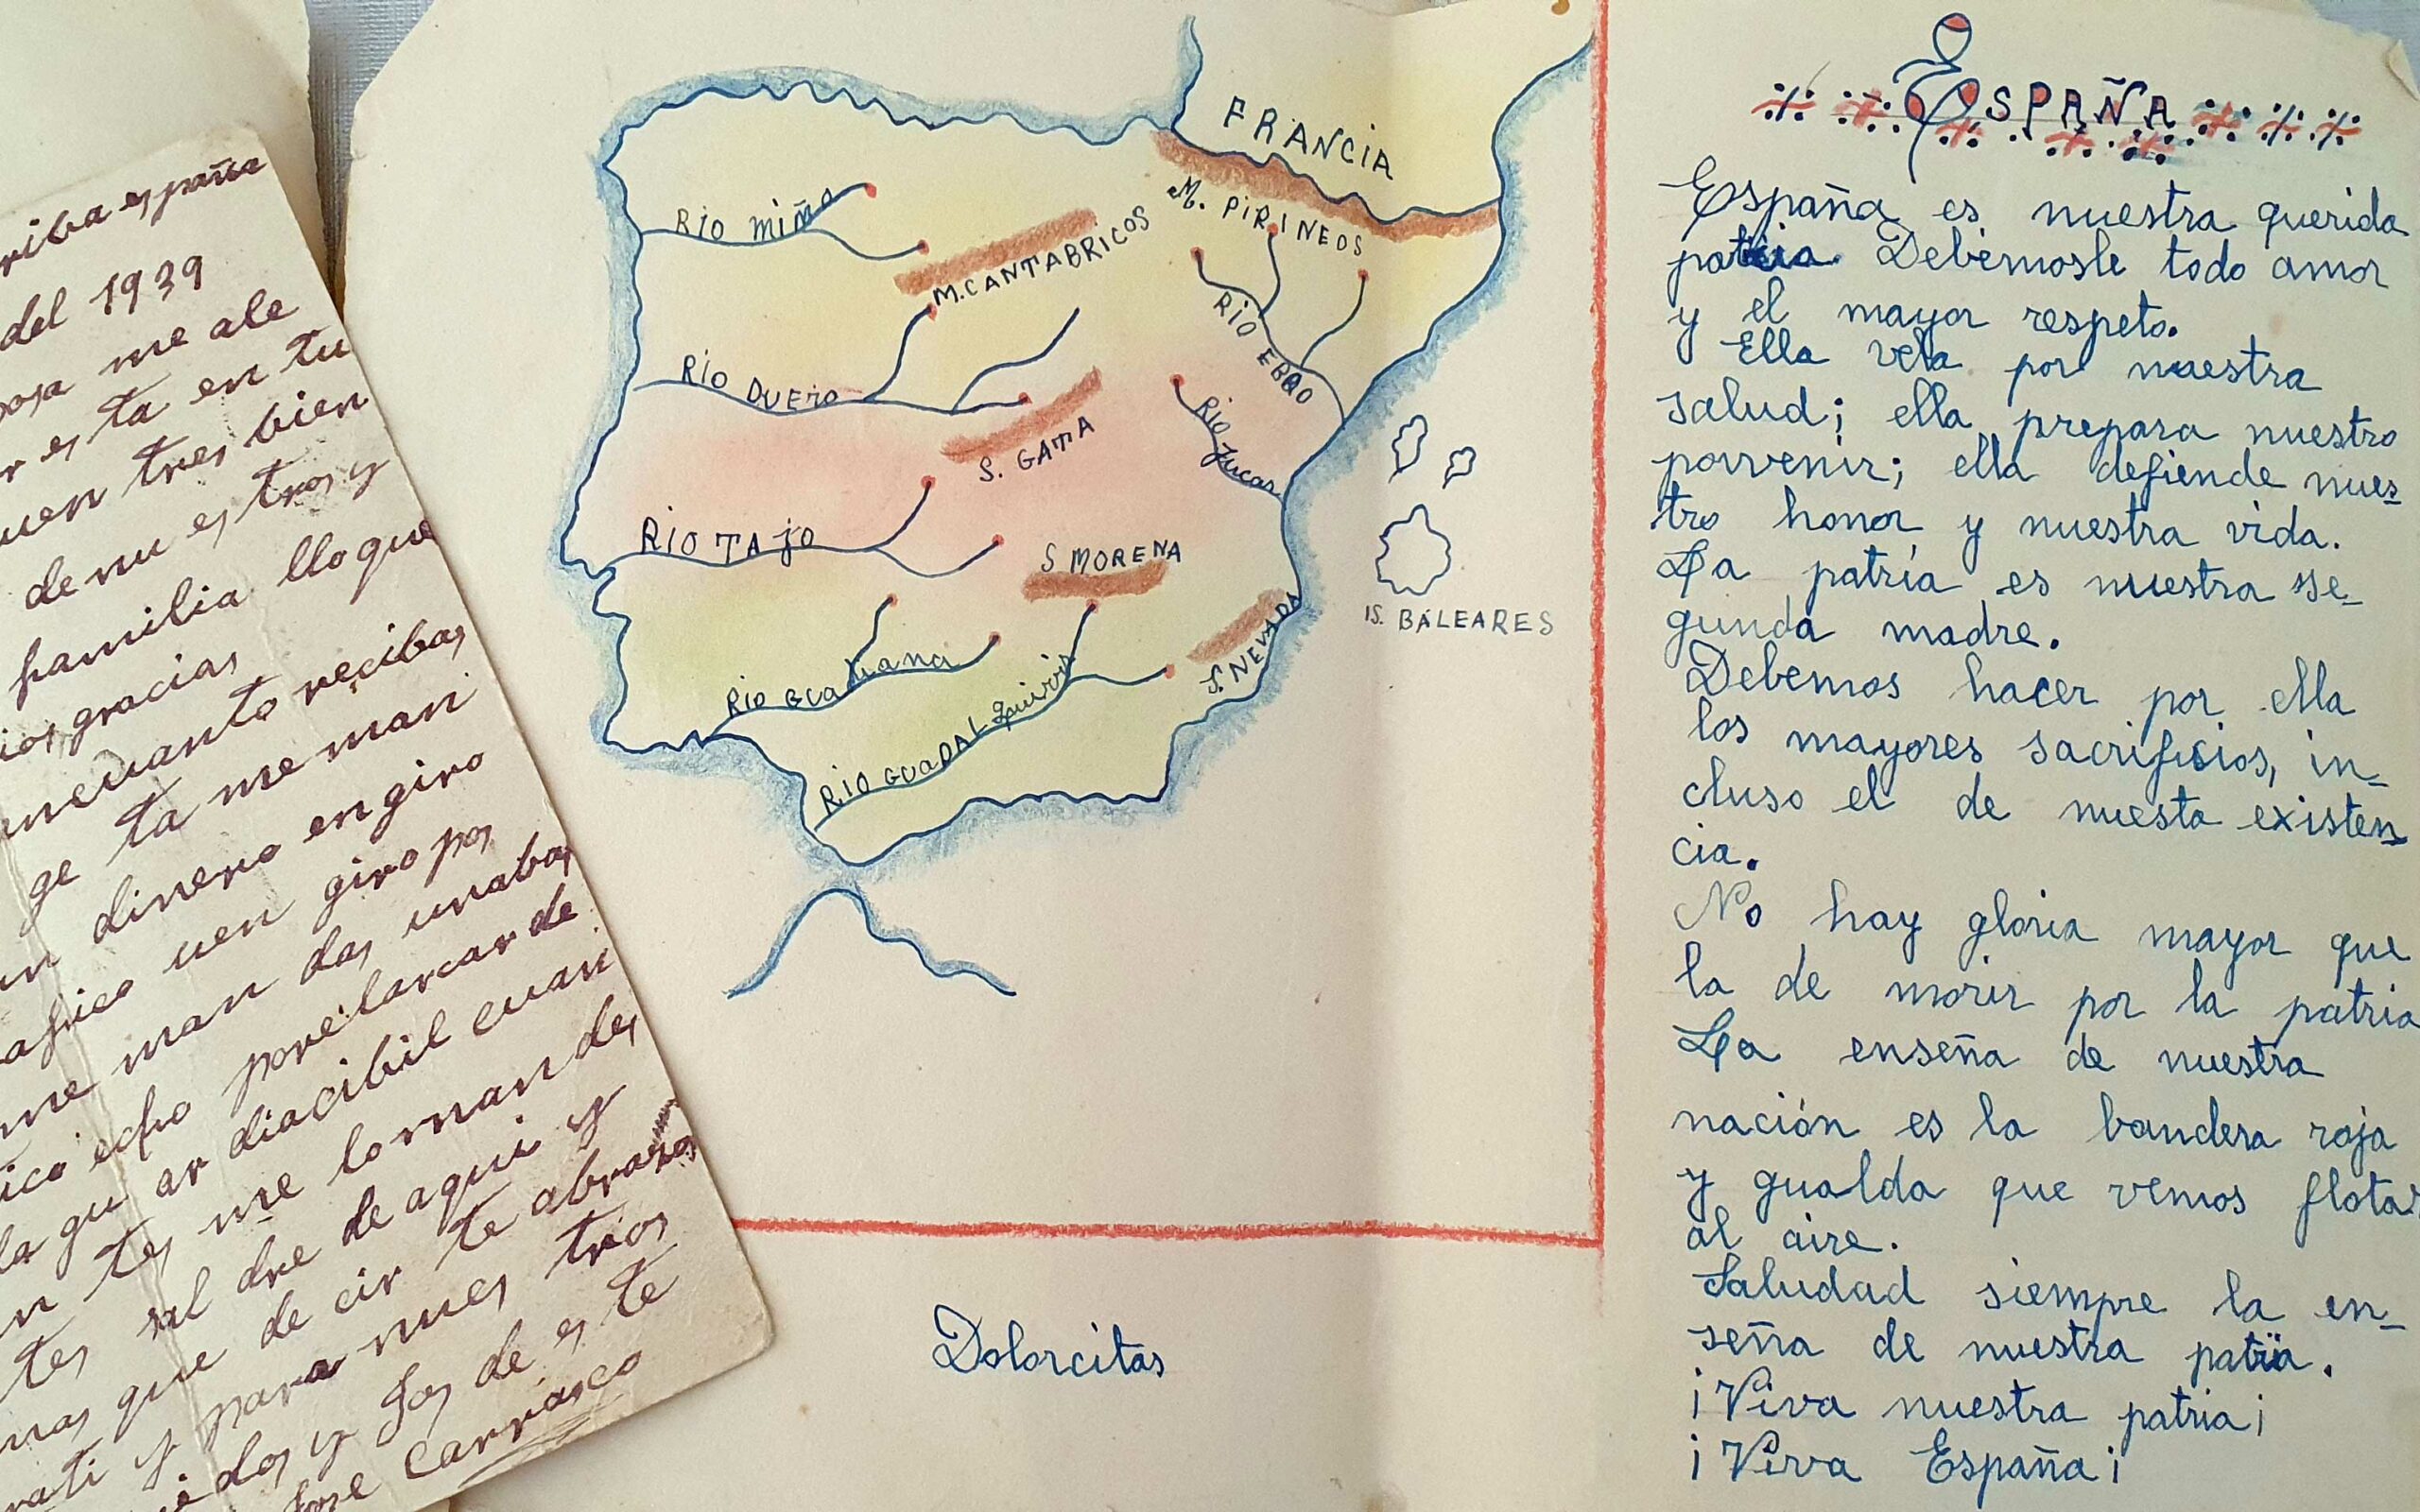 riba españa
del 1939
me ale
r es ta en tu
uen tres bien
de nu es tros y
familia llo que
ios gracias
necuanto recibas
ge ta me man
un dinero en giro
afico uen giro pos
me man das unabas
ico echo porelarcar de
la gu ar diacibil cuan
n tes me lo man des
tes sal dre de aqui y
mas que de cir te abrazos
rati y para nues trios
dos y fos de es te
Jose Carrasco
FRANCIA
M. PIRINEOS
RIO MIÑO
M. CANTABRICOS
RIO EBRO
RIO DUERO
S. GATA
RIO Jucar
RIO TAJO
S MORENA
IS. BALEARES
S. NEVADA
RIO GUADIANA
RIO GUADALQUIVIR
Dolorcitas
ESPAÑA
España es nuestra querida
patria. Debemosle todo amor
y el mayor respeto.
Ella vela por nuestra
salud; ella prepara nuestro
porvenir; ella defiende nues-
tro honor y nuestra vida.
La patria es nuestra se-
gunda madre.
Debemos hacer por ella
los mayores sacrificios, in-
cluso el de nuesta existen-
cia.
No hay gloria mayor que
la de morir por la patria
La enseña de nuestra
nación es la bandera roja
y gualda que vemos flotar
al aire.
Saludad siempre la en-
seña de nuestra patria.
¡Viva nuestra patria¡
¡Viva España¡